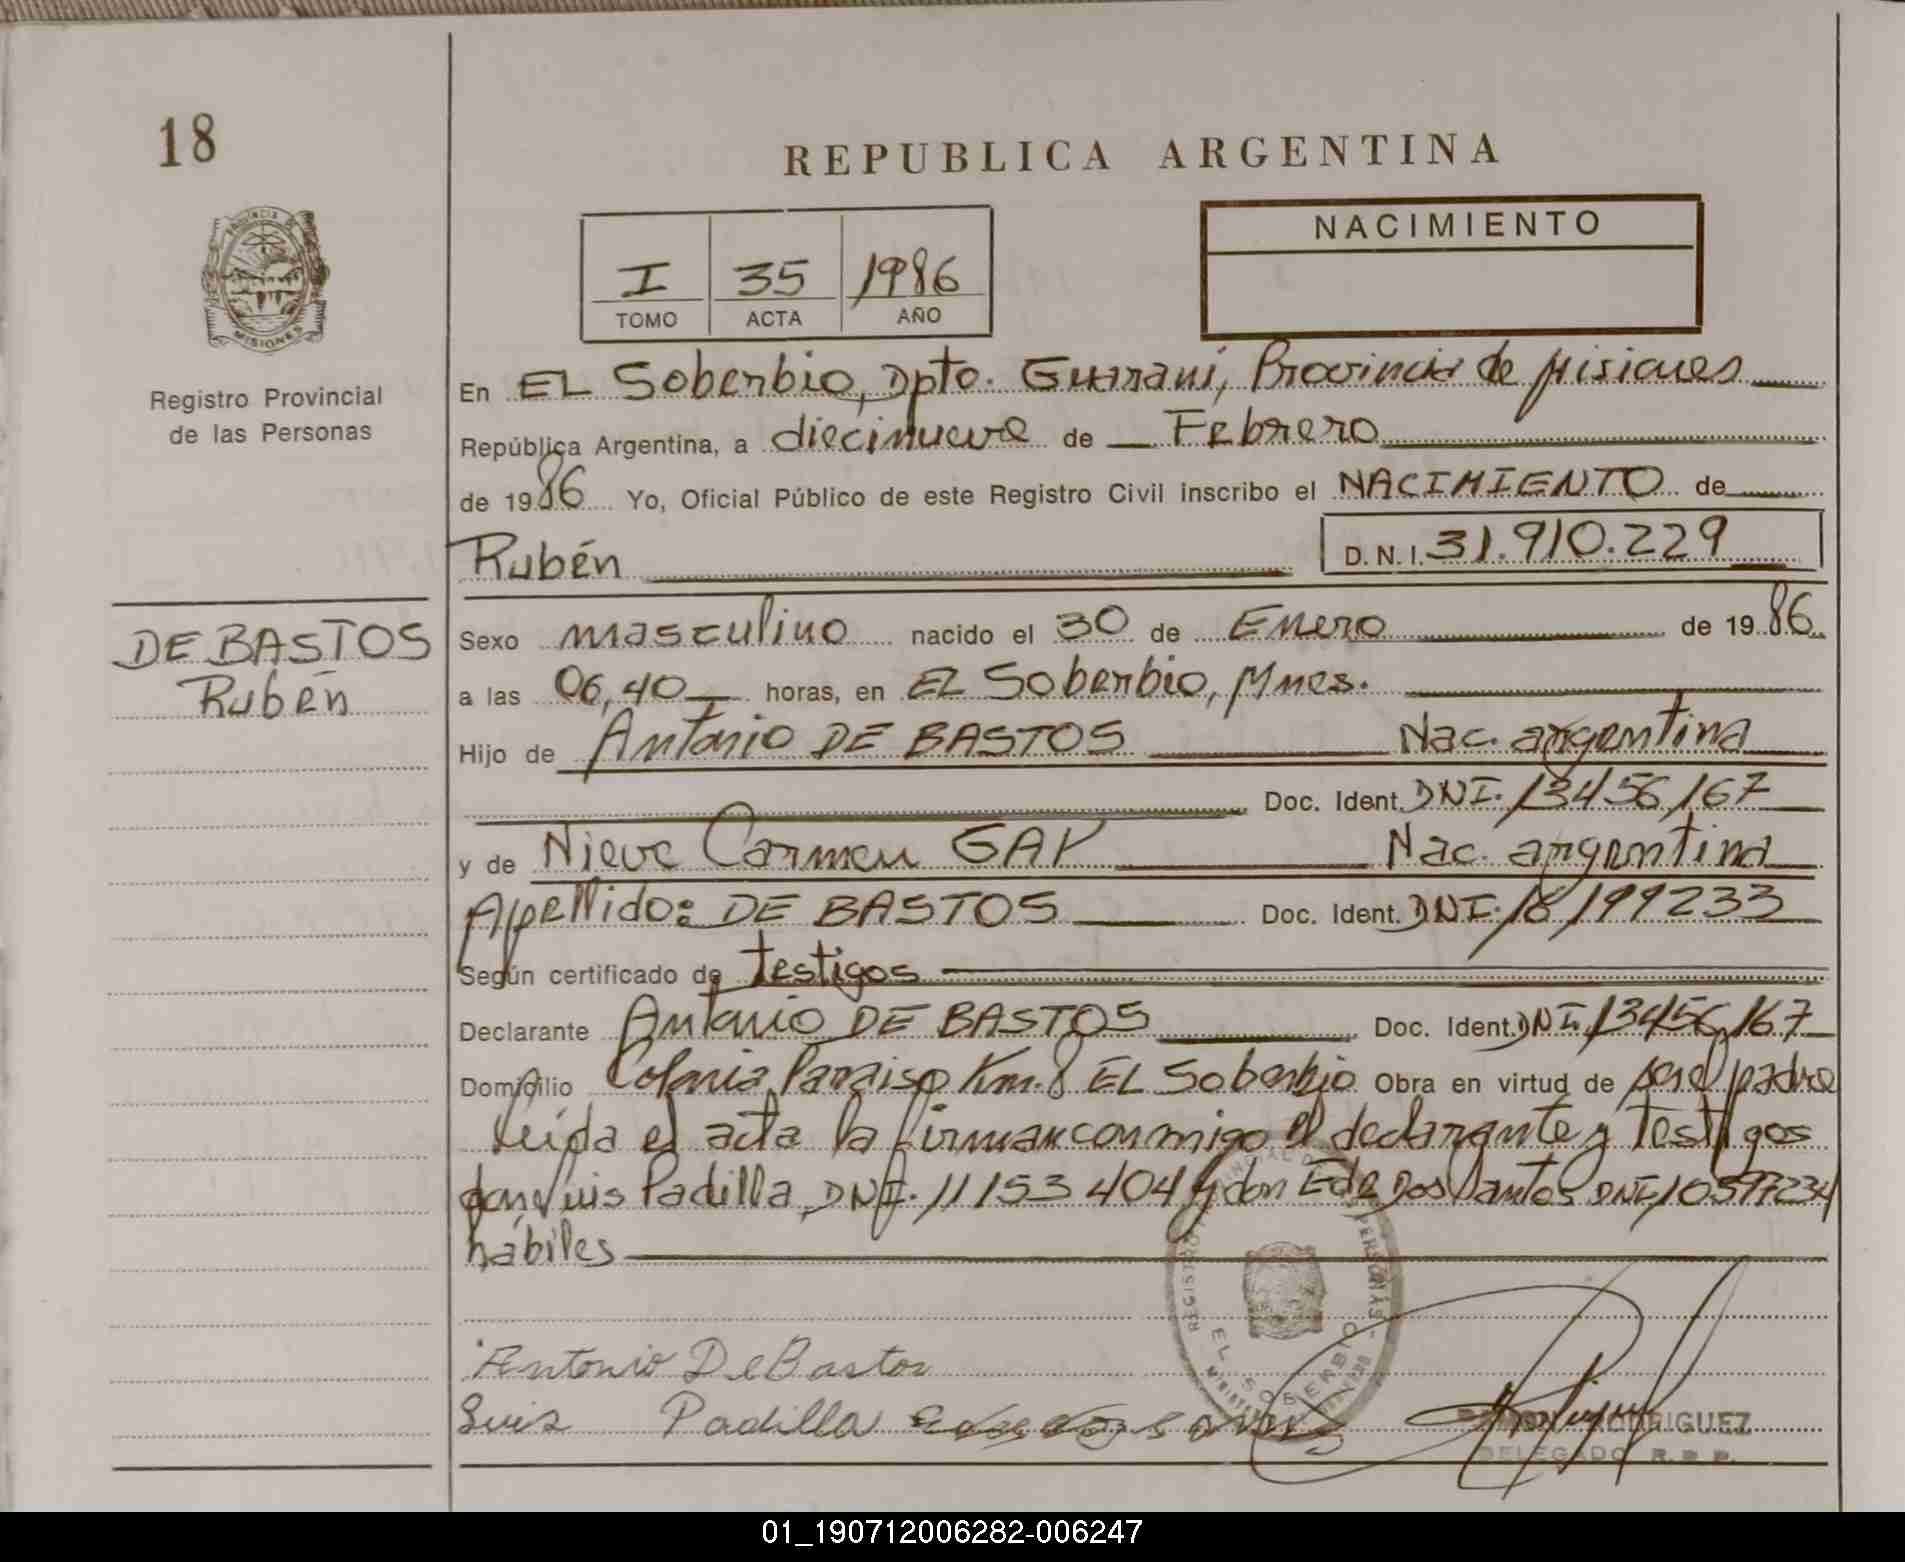 18
REPUBLICA ARGENTINA
PROVINCIA DE
MISIONES
Registro Provincial
de las Personas
I 35 1986
TOMO ACTA AÑO
NACIMIENTO
En EL Soberbio, Dpto. Guarani, Provincia de Misiones
República Argentina, a diecinueve de Febrero
de 1986 Yo, Oficial Público de este Registro Civil inscribo el NACIMIENTO de
Rubén D.N.I. 31.910.229
DE BASTOS
Rubén
Sexo masculino nacido el 30 de Enero de 1986
a las 06,40 horas, en EL Soberbio, Mnes.
Hijo de Antonio DE BASTOS Nac. argentina
Doc. Ident. DNI. 13456167
y de Nieve Carmen GAY Nac. argentina
Apellido: DE BASTOS Doc. Ident. DNI. 16199233
Según certificado de testigos
Declarante Antonio DE BASTOS Doc. Ident. DNI. 13456167
Domicilio Colonia Paraiso Km. 8 EL Soberbio Obra en virtud de ser el padre
leída el acta la firman conmigo el declarante y testigos
don Luis Padilla, DNI. 11153404 y don Dos Santos DNI
hábiles
REGISTRO PERSONAS
EL SOBERBIO
Antonio De Bastos
Luis Padilla
RODRIGUEZ
DELEGADO R. P. P.
01_190712006282-006247